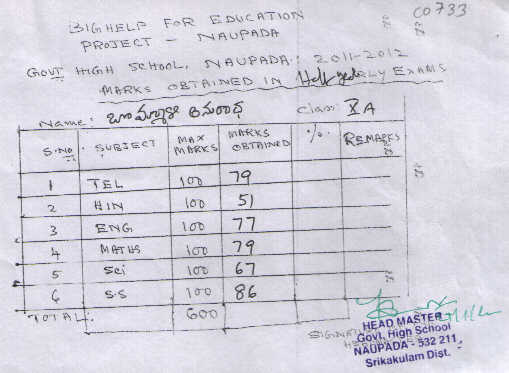 CO733
BIGHELP FOR EDUCATION
PROJECT - NAUPADA
GOVT HIGH SCHOOL, NAUPADA: 2011-2012
MARKS OBTAINED IN Half yearly EXAMS
Name: అనురాధ class: X A
S.No SUBJECT MAX MARKS MARKS OBTAINED % REMARKS
1 TEL 100 79
2 HIN 100 51
3 ENG 100 77
4 MATHS 100 79
5 Sci 100 67
6 S.S 100 86
TOTAL: 600
HEAD MASTER
Govt. High School
NAUPADA - 532 211
Srikakulam Dist.